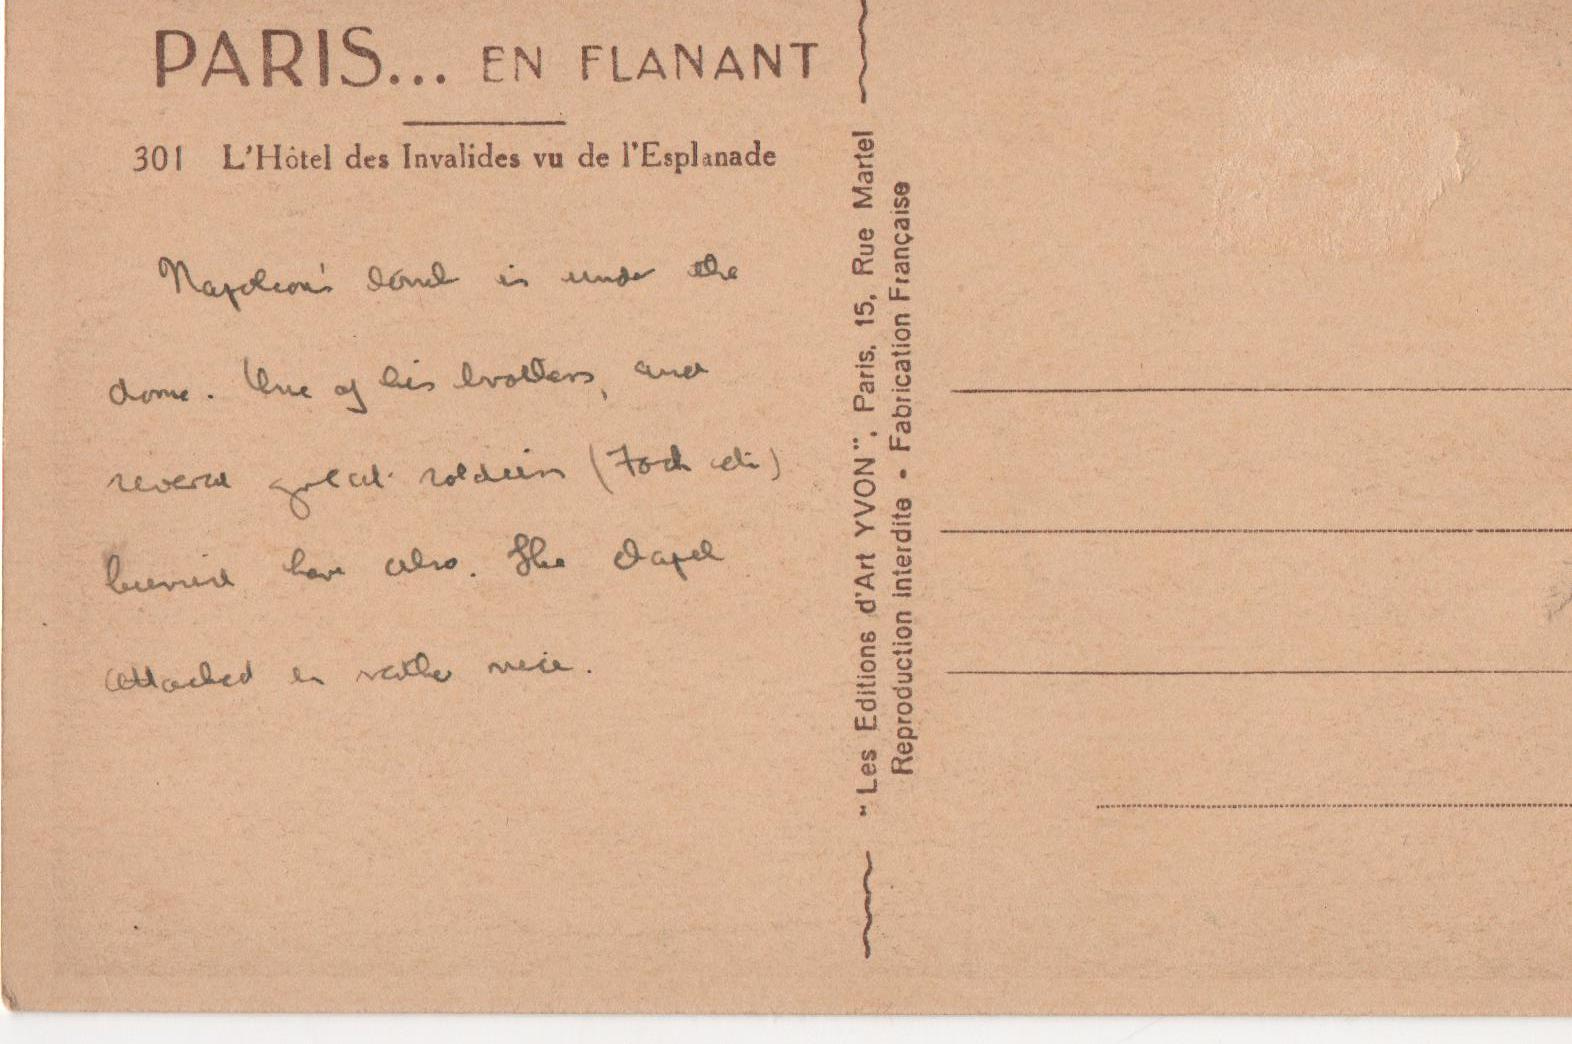 PARIS... EN FLANANT
301 L'Hôtel des Invalides vu de l'Esplanade
Napoleon's tomb is under the
dome. One of his brothers, and
several great soldiers (Foch etc)
buried here also. The chapel
attached is rather nice.
"Les Editions d'Art YVON", Paris, 15, Rue Martel
Reproduction Interdite • Fabrication Française